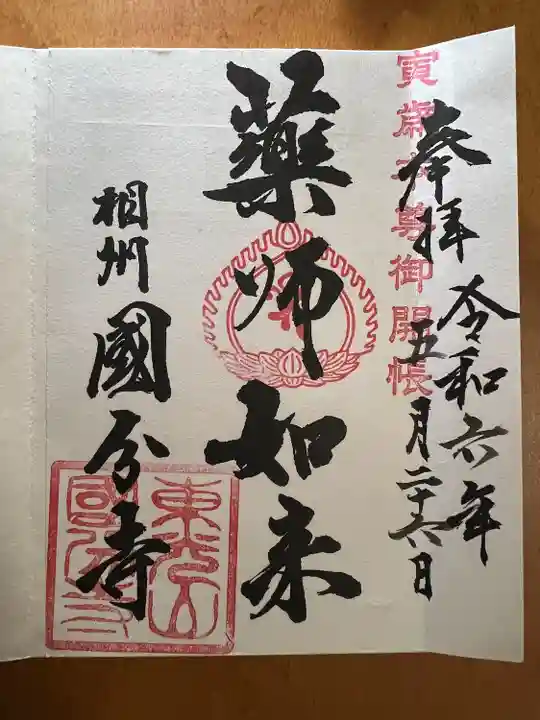 奉拝
令和六年
五月二十六日
寅歳本尊御開帳
薬師如来
相州 國分寺
東光山
國分寺